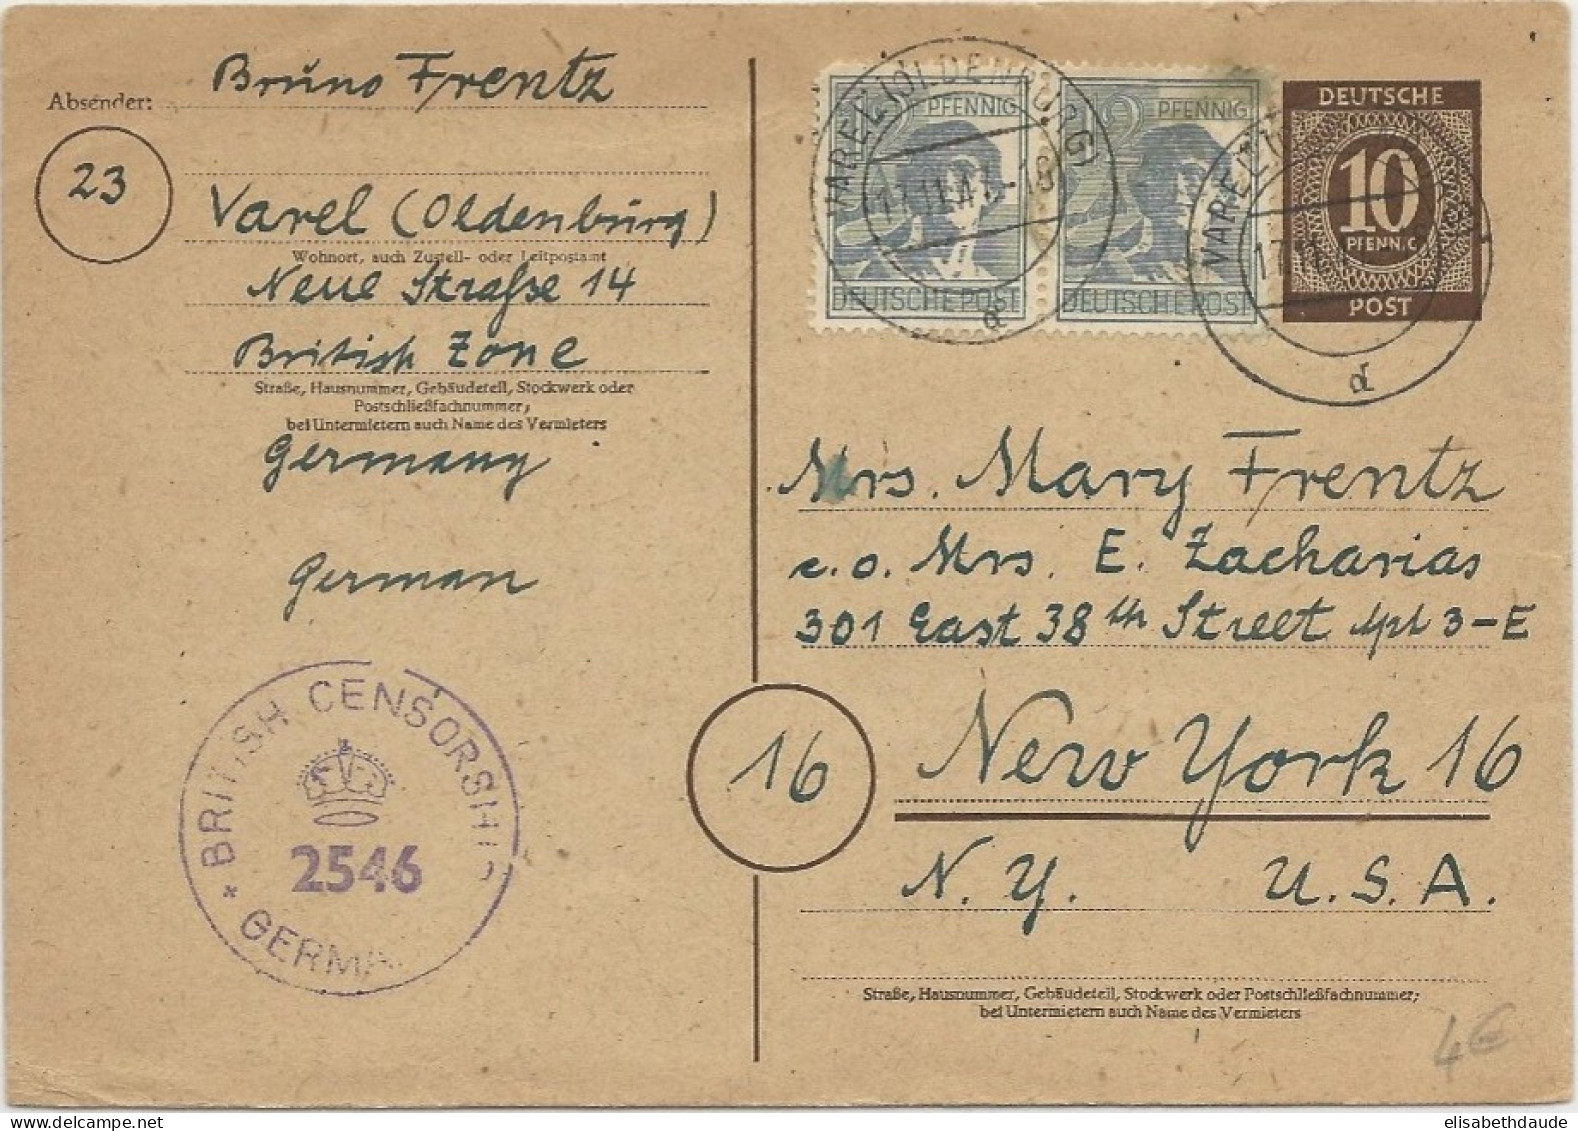 Absender: Bruno Frentz
23
Varel (Oldenburg)
Wohnort, auch Zustell- oder Leitpostamt
Neue Straße 14
British Zone
Straße, Hausnummer, Gebäudeteil, Stockwerk oder
Postschließfachnummer;
bei Untermietern auch Name des Vermieters
Germany
German
BRITISH CENSORSHI
2546
* GERMA
12 PFENNIG
DEUTSCHE POST
12 PFENNIG
DEUTSCHE POST
VAREL (OLDENBURG)
17.11.47.-18
d
DEUTSCHE
10
PFENNIG
POST
VAREL
17
d
Mrs. Mary Frentz
c.o. Mrs. E. Zacharias
301 East 38th Street Apt 3-E
16
New York 16
N.Y. U.S.A.
Straße, Hausnummer, Gebäudeteil, Stockwerk oder Postschließfachnummer;
bei Untermietern auch Name des Vermieters
4€
elisabethdaude